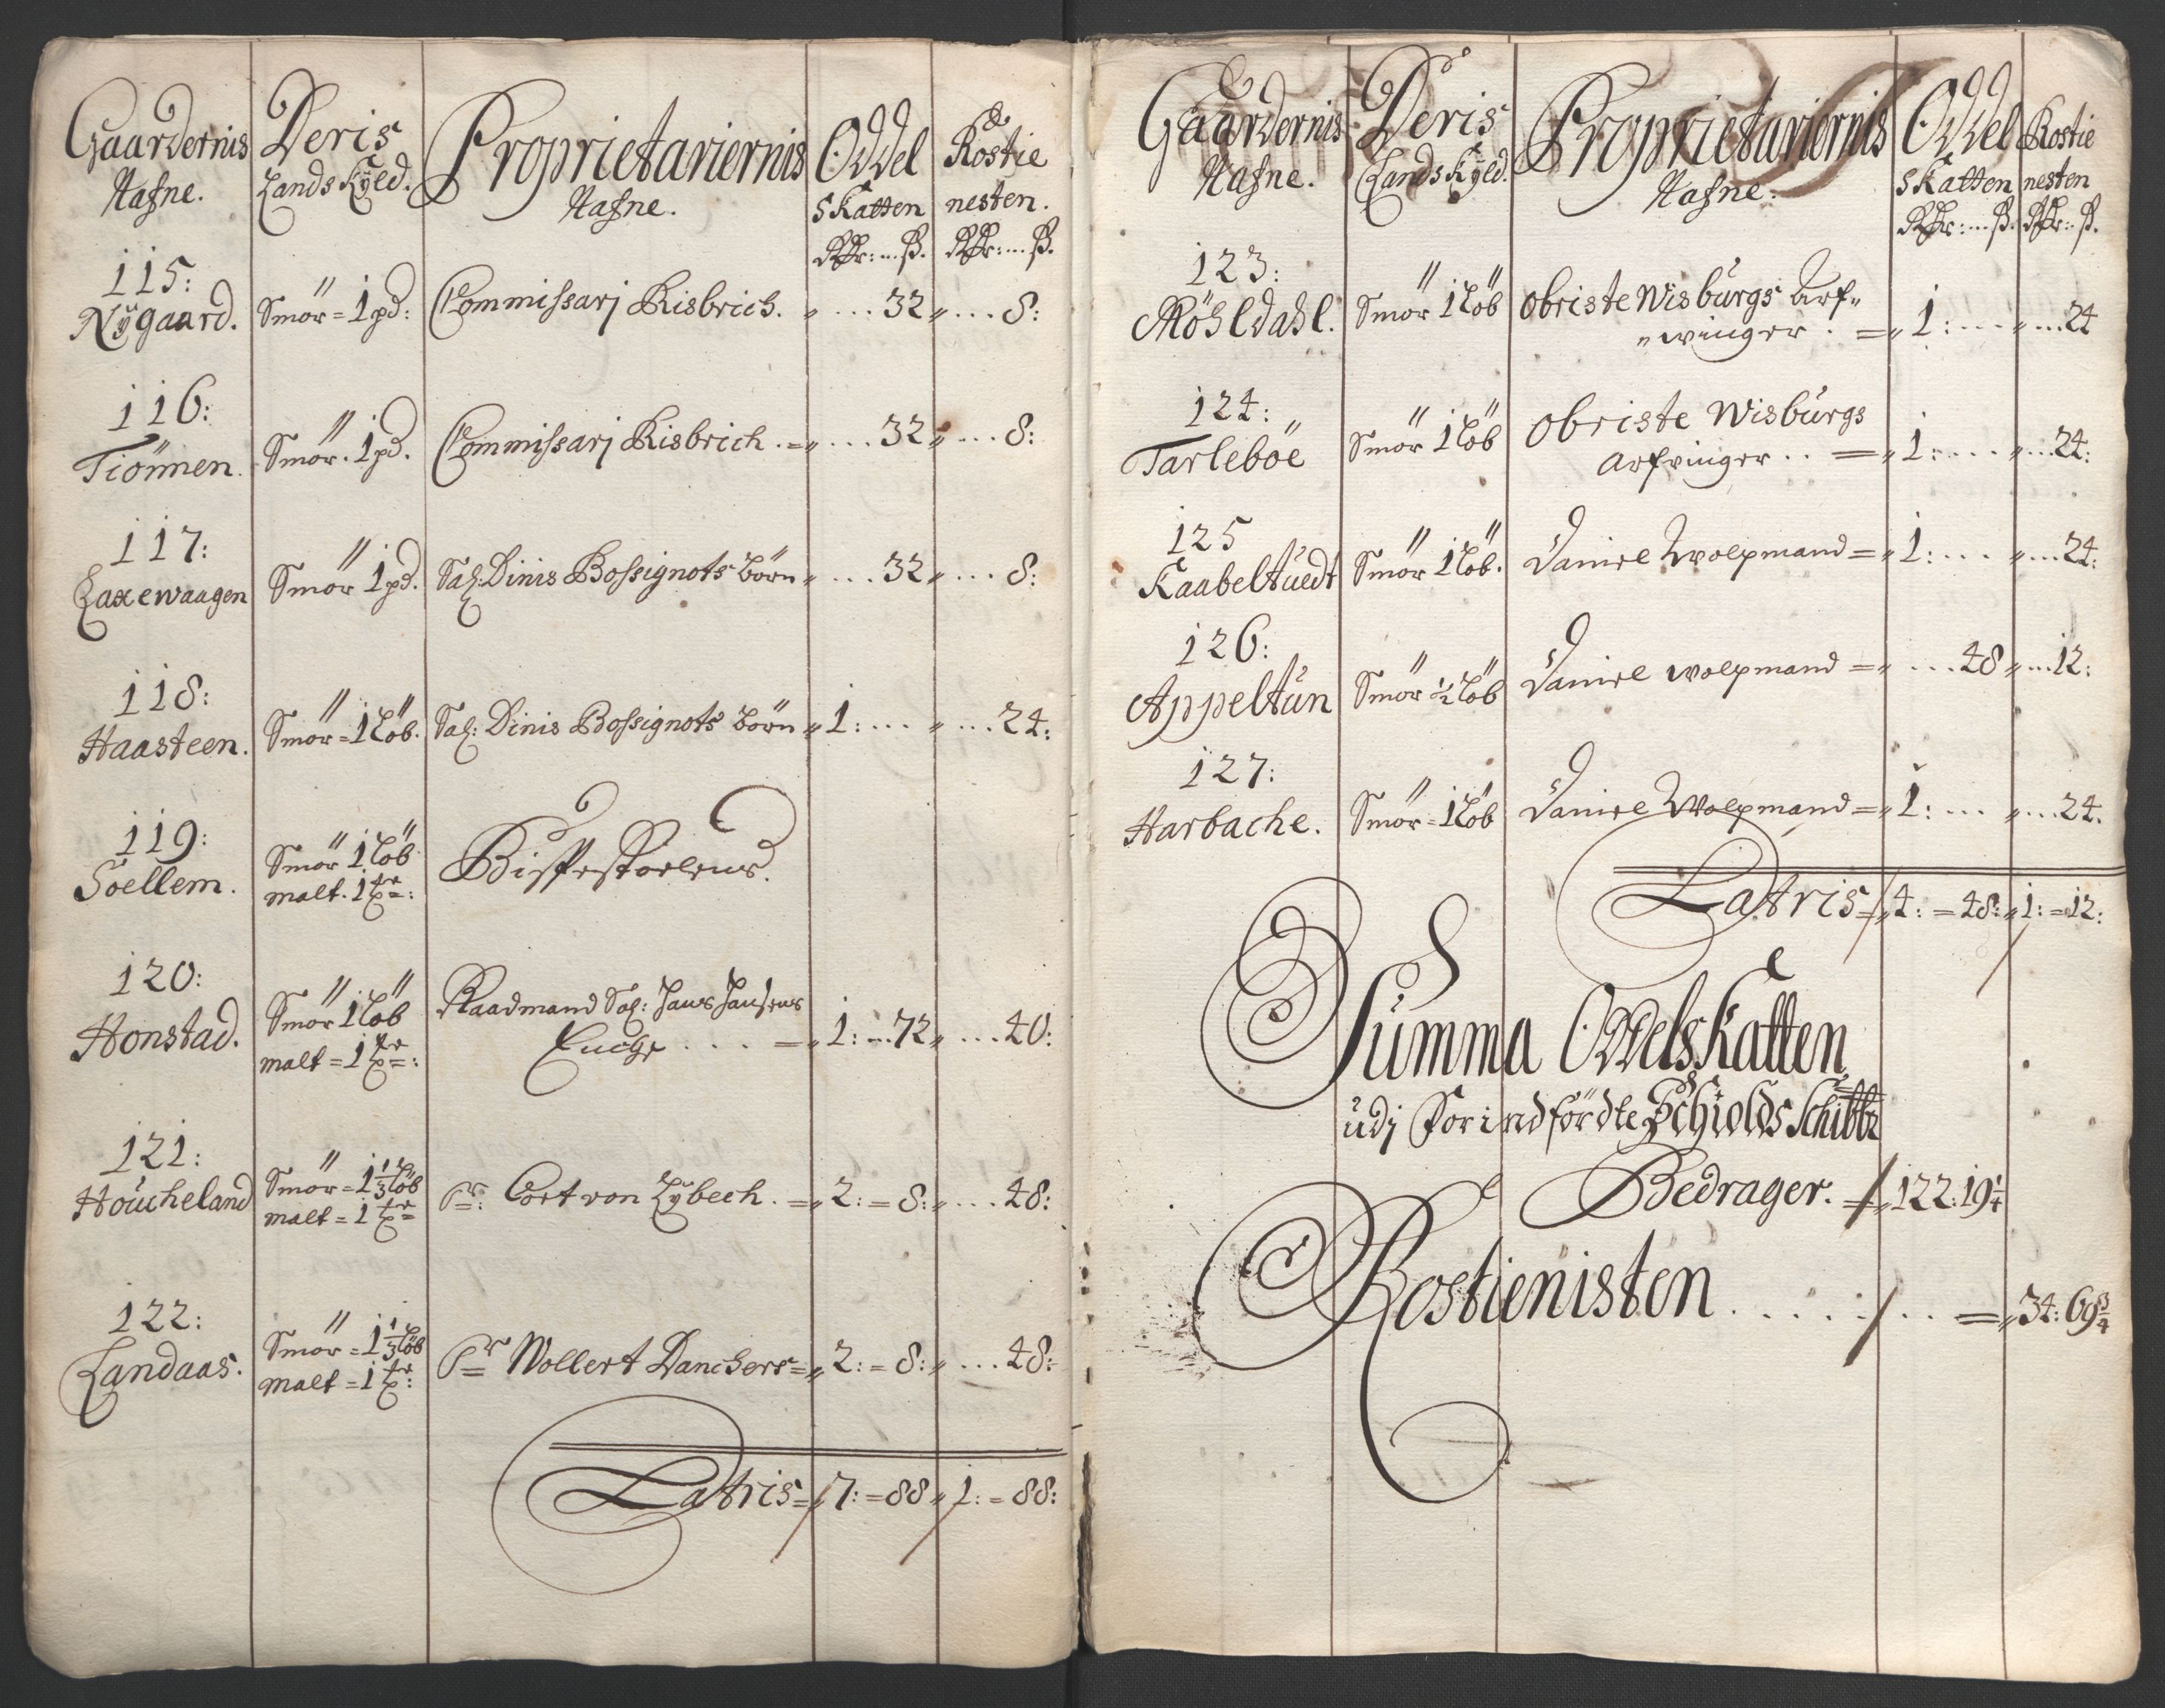 Gaardernis Nafne. | Deris Lands Kÿld. | Proprietariernis Nafne. | Oddel skatten Rdr: ... ß. | Rostie nesten. Rdr: ... ß.
115: Nÿgaard. | Smör = 1 pd: | Commissarj Risbrich. | " ... 32 | " ... 8:
116: Tiönnen. | Smör. 1 pd. | Commissarj Risbrich. = | " ... 32 | " ... 8:
117: Laxewaagen | Smör 1 pd. | Sal: Dinis Bossignots Börn | " ... 32 | " ... 8:
118: Haasteen. | Smör = 1 Löb. | Sal: Dinis Bossignots Börn | " 1: ... | " ... 24:
119: Soellem. | Smör 1 Löb malt. 1 tr =: | Bispestoelens.
120: Honstad. | Smör 1 Löb malt = 1 tr =: | Raadmand Sal: Hans Hansens Enche ... = | " 1: ... 72 | " ... 40:
121: Houcheland | Smör = 1 1/3 Löb malt = 1 tr = | Sr: Cort von Lÿbech. = | " 2: = 8: | " ... 48:
122: Landaas. | Smör = 1 1/3 Löb malt = 1 tr: | Sr Wollert Danchers = | " 2: = 8: | " ... 48:
Latris = | 7: = 88 | " 1: = 88:
Gaardernis Nafne. | Deris Lands Kÿld. | Proprietariernis Nafne: | Oddel skatten Rdr: ... ß. | Rostie nesten Rdr: ß.
123: Möhldahl. | Smör 1 Löb | Obriste Wisburgs Arf" "winger. = | " 1: ... | " ... 24
124: Tarleböe | Smör 1 Löb | Obriste Wisburgs Arfvinger .. = | " 1: ... | " ... 24:
125 Kaabeltuedt | Smör 1 Löb. | Daniel Wolpmand = | " 1: ... | " ... 24:
126: Appeltun | Smör 1/2 Löb | Daniel wolpmand = | " ... 48 | " ... 12:
127: Harbache. | Smör = 1 Löb | Daniel Wolpmand = | " 1: ... | " ... 24.
Latris = | 4: = 48: | " 1: = 12:
Summa OddelsKatten
udj Forindfördte Schiolds Schibbr
Bedrager. = | 122: 19 1/4
Rostienisten ..... = | " 34: 69 3/4